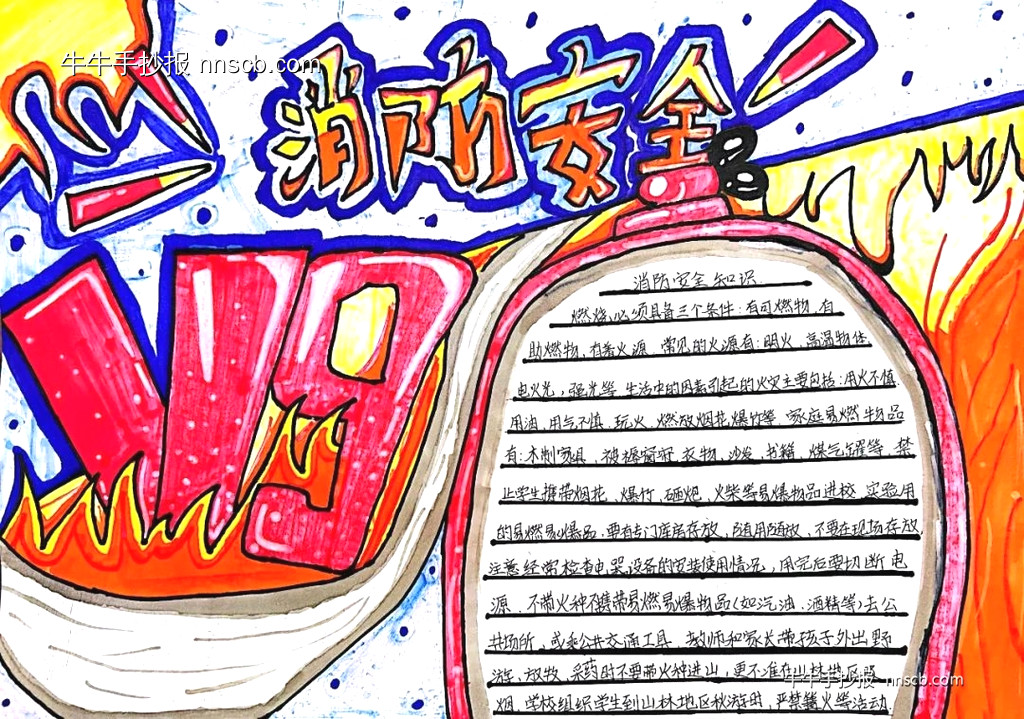 牛牛手抄报 nnscb.com
消防安全
119
消防安全知识
燃烧必须具备三个条件:有可燃物,有
助燃物,有着火源.常见的火源有:明火,高温物体
电火光,强光等.生活中的因素引起的火灾主要包括:用火不慎
用油,用气不慎,玩火,燃放烟花爆竹等,家庭易燃物品
有:木制家具,被褥窗帘,衣物,沙发,书籍,煤气罐等,禁
止学生携带烟花,爆竹,砸炮,火柴等易爆物品进校,实验用
的易燃易爆品,要有专门库房存放,随用随放,不要在现场存放
注意经常检查电器设备的安装使用情况,用完后要切断电
源,不带火种不携带易燃易爆物品(如汽油,酒精等)去公
共场所,或乘公共交通工具,教师和家长带孩子外出野
游,放牧,采药时不要带火种进山,更不准在山林地区吸
烟,学校组织学生到山林地区秋游时,严禁篝火等活动
牛牛手抄报 nnscb.com